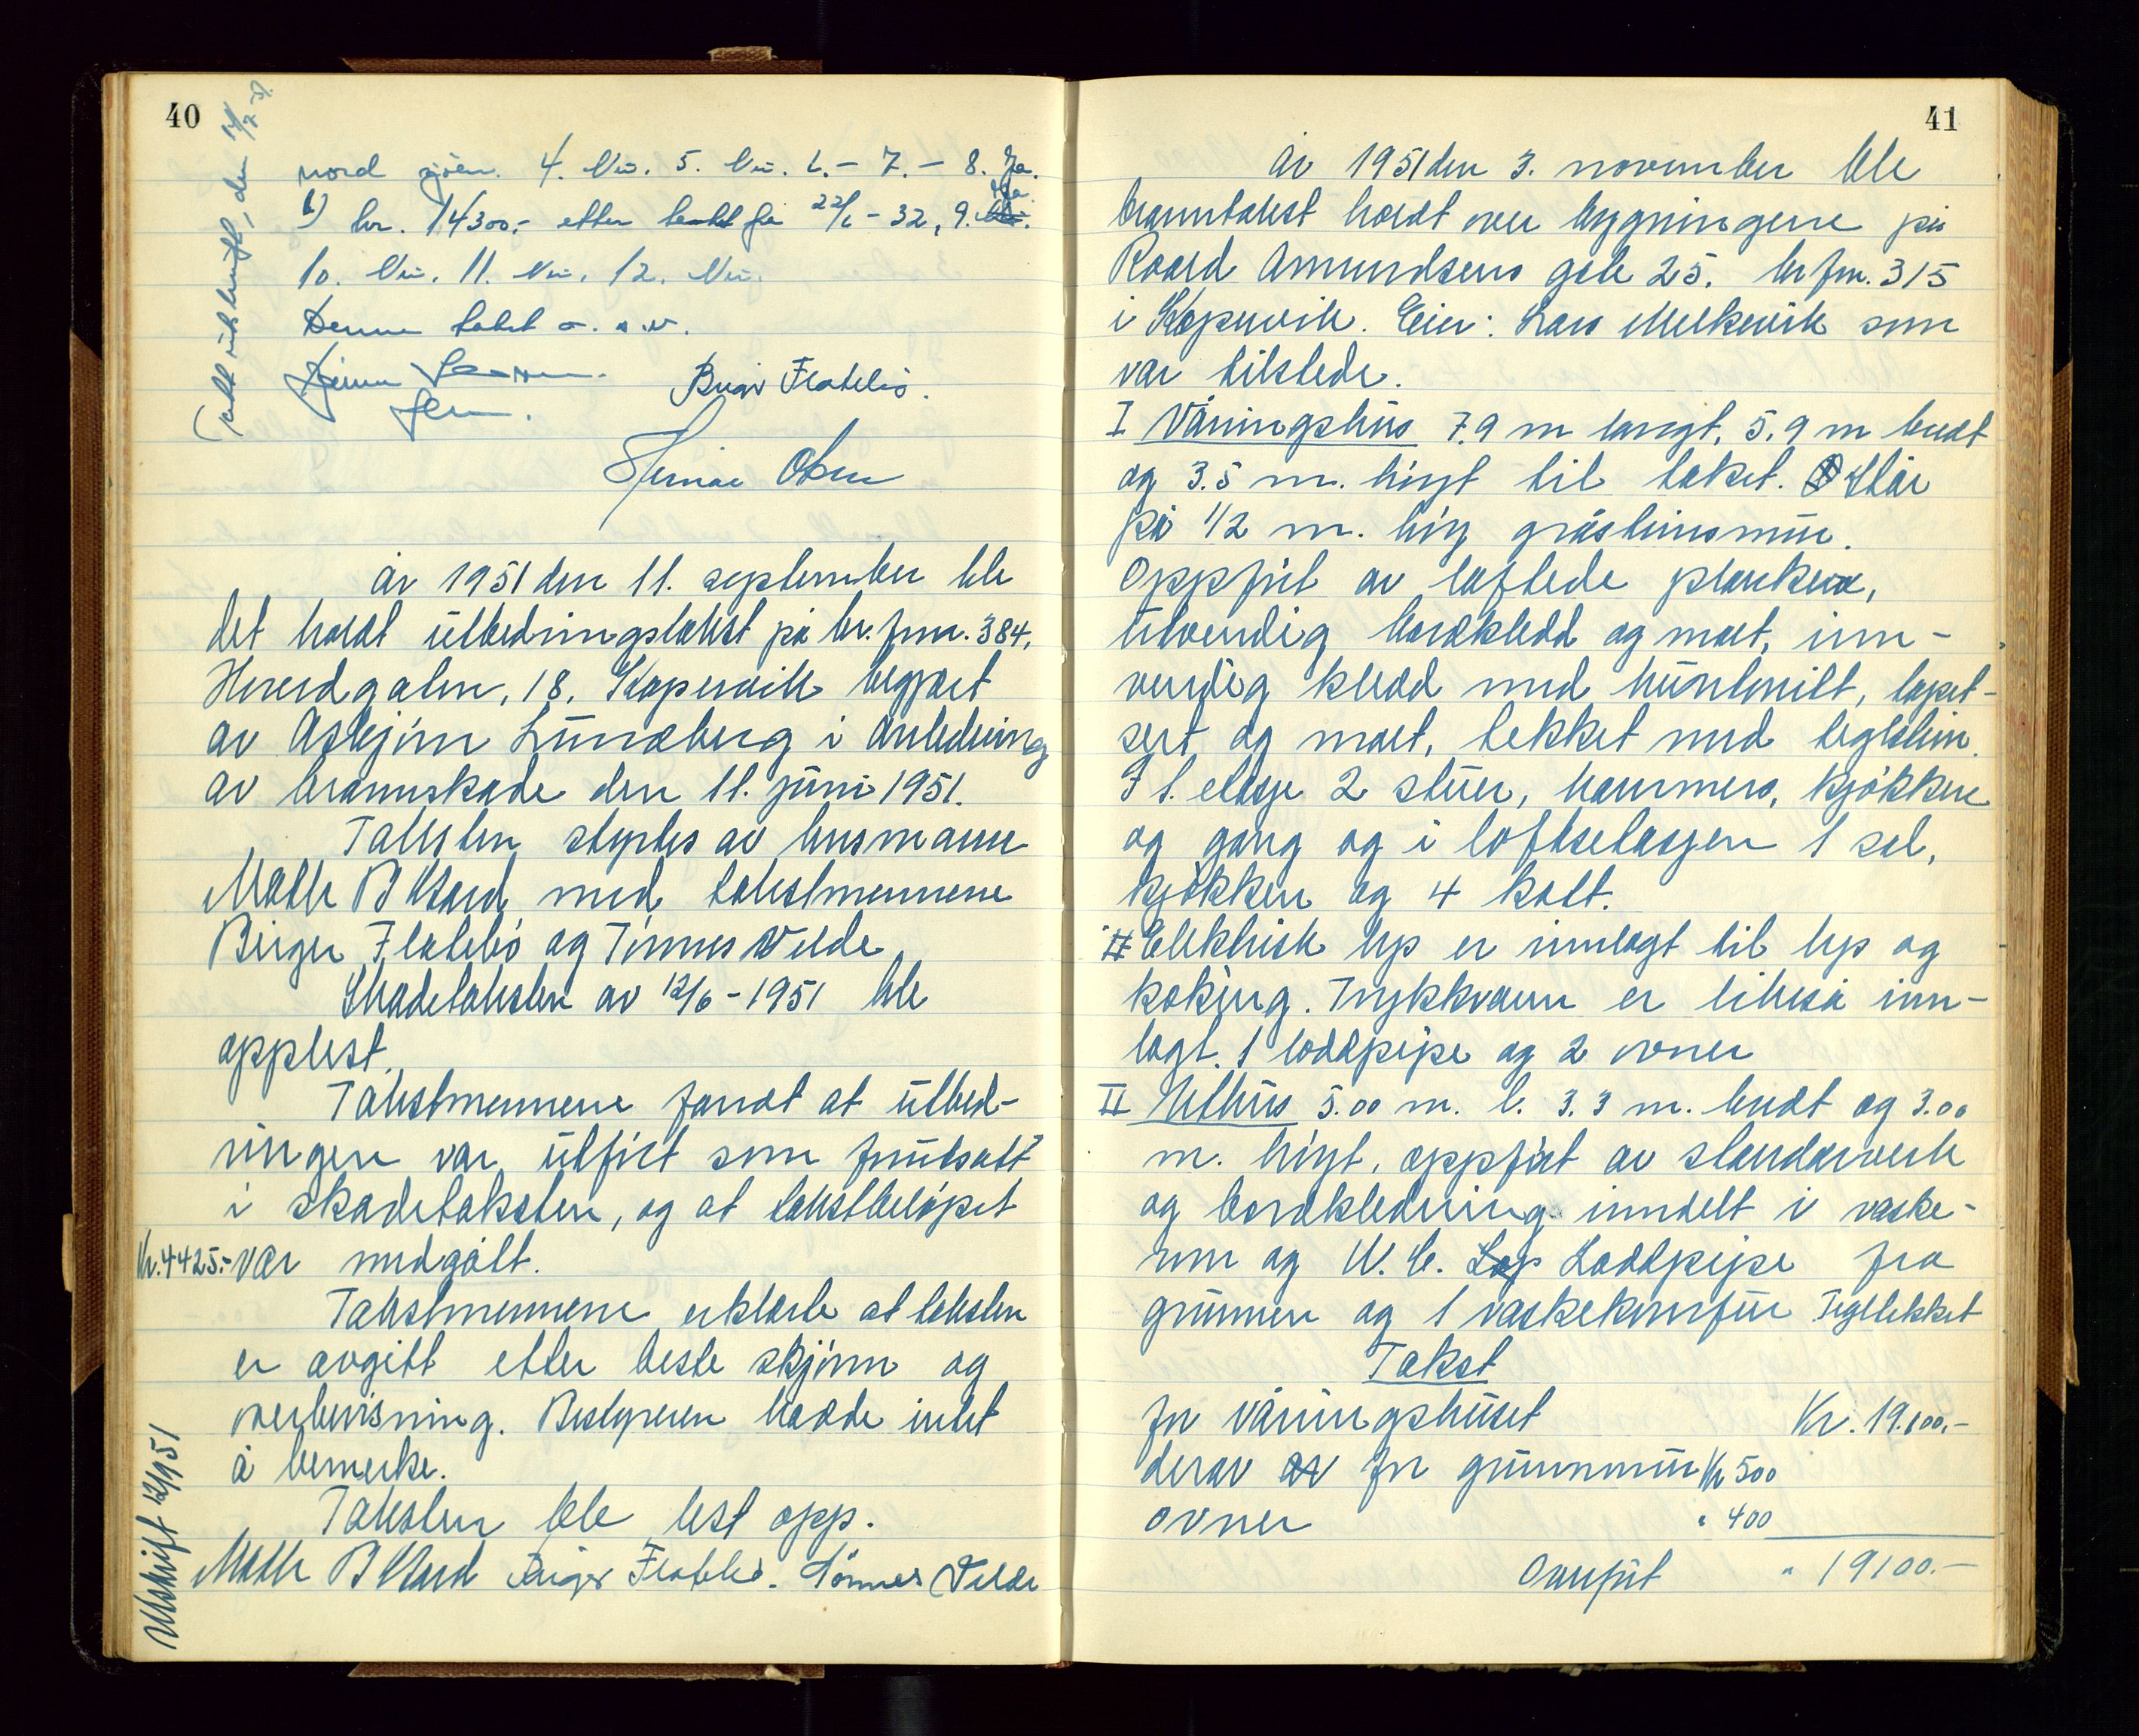 40
nord sjøen. 4. Nei. 5. Nei. 6. - 7. - 8. Ja.
b) kr. 14300,- etter takst fra 22/6 - 32, 9. Ja
10. Nei. 11. Nei. 12. Nei.
Denne takst o. s. v.
Birger Flotelid.
Olsen
År 1951 den 11. september ble
det holdt utbedringstakst på br.fnr. 384,
18. Kopervik begjært
av Asbjørn Lundberg i anledning
av brannskade den 11. juni 1951.
Taksten styrtes av lensmann
med takstmennene
Birger Flotelid og Tønnes Velde
Skadetaksten av 12/6 - 1951 ble
opplest.
Takstmennene fandt at utbed-
ringen var utført som forutsatt
i skadetaksten, og at takstbeløpet
Kr. 4425.- var medgått.
Takstmennene erklærte at taksten
er avgitt etter beste skjønn og
overbevisning. Bestyreren hadde intet
å bemerke.
Taksten ble lest opp.
Birger Flotelid. Tønnes Velde
Utskrift 12/9 51
41
År 1951 den 3. november ble
branntakst holdt over bygningene på
Roald Amundsens gate 25. br fnr. 315
i Kopervik. Eier: Lars Melkevik som
var tilstede.
I Våningshus 7.9 m langt, 5.9 m bredt
og 3.5 m. høyt til taket. Står
på 1/2 m. høy gråsteinsmur.
Oppført av laftede planker,
utvendig bordkledd og malt, inn-
vendig kledd med huntonitt, tapet-
sert og malt, tekket med teglstein.
I 1. etasje 2 stuer, kammers, kjøkken
og gang og i loftsetasjen 1 sal,
kjøkken og 4 kott.
Elektrisk lys er innlagt til lys og
koking. Trykkvann er likeså inn-
lagt. 1 loddpipe og 2 ovner
II Uthus 5.00 m. l. 3.3 m. bredt og 3.00
m. høyt, oppført av standarverk
og bordkledning inndelt i vaske-
rum og W. C. Lop Loddpipe fra
grunnen og 1 vaskekomfur Tegltekket
Takst
for våningshuset Kr. 19.100.-
derav av for grunnmur Kr 500
ovner " 400
Overført " 19100.-